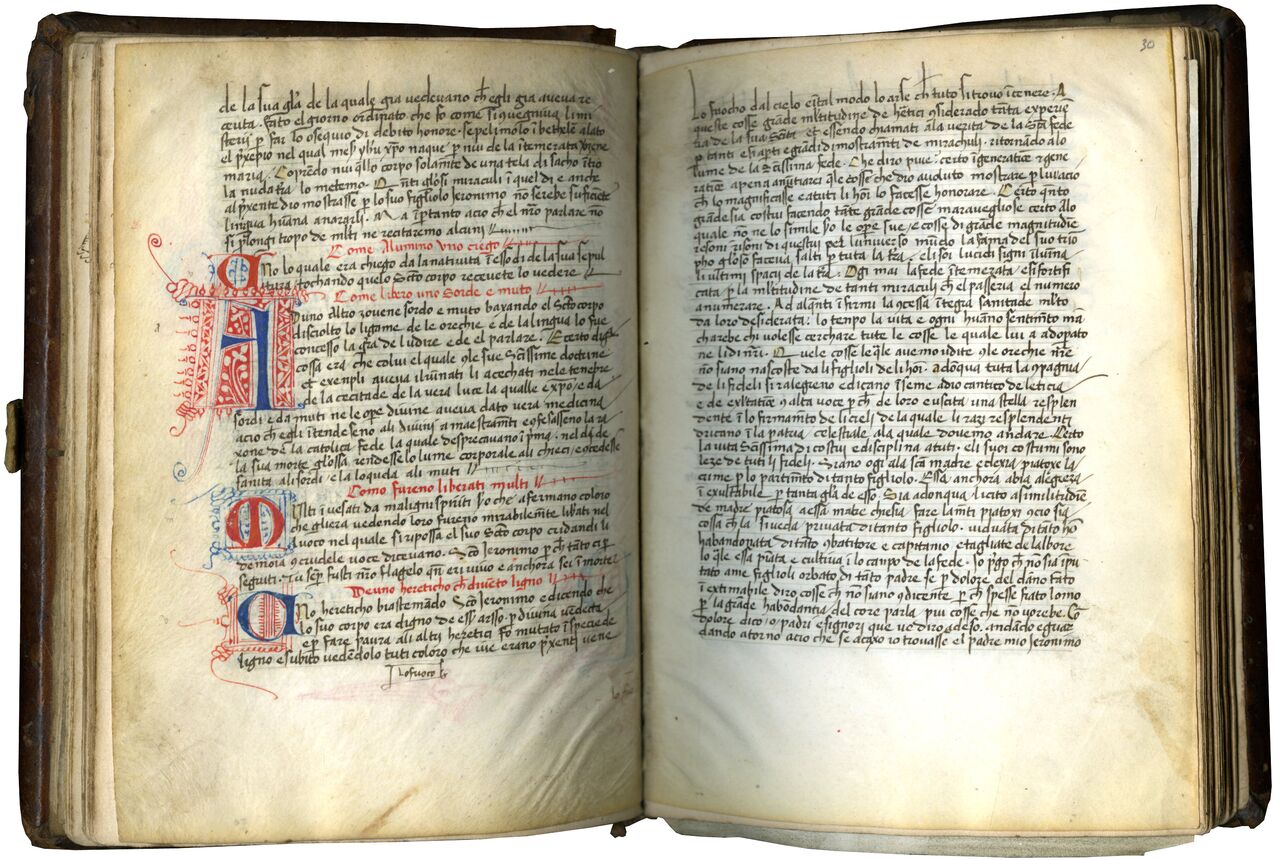 de la sua gl'a de la quale gia vedevano ch egli gia aveva re
ceuta. Fato el giorno ordinato che fo come si quegniva li mi
sterij p far lo osequio di debito honore. sepelimolo i bethele alato
el p'sepio nel qual mess yhu xpo naque p nui de la itemerata v'gene
maria. Coprendo nui q'llo corpo solam'te de una tela di sacho it'no
la nuda t'ra lo metemo. Q nti gl'osi miraculi i quel di e anche
al p'xente dio mostrasse p lo suo figliolo Jeronimo no serebe suficie'te
lingua hu'ana a nararli. M a ip'tanto acio ch el n'ro parlare no
si p'longi tropo de m'lti ne recitaremo alcuni
Come Alumino uno ciego
U No lo quale era chiego da la nativita i esso di de la sua sepul
tura tochando quelo S'cto corpo recevete lo vedere
Come libero uno Sorde e muto
A D uno Altro zovene sordo e muto baxando el S'cto corpo
disciolto lo ligame de le orechie e de la lingua lo fue
concesso la gr'a de l udire e de el parlare. E certo dig'
cossa era che colui el quale q'le sue S'cissime doctrine
et exenpli aveva ilu'inati li acechati nele tenebre
de la cecitade de la vera luce la qualle expo/e da
sordi e da muti ne le op'e divine aveva dato vera medicina
acio ch egli i'tende seno ali divini amaestram'ti e q'fesasseno la ra
xone de la catolica fede la quale desprecavano i'p'ma. nel di de
la sua morte gl'ossa rendesse lo lume corporale ali chieci e q'cedesse
sanita ali sordi e la loquela ali muti
Como fureno liberati multi
M Ulti i'vesati da maligni spiriti p'o che afermano coloro
che gliera vedendo loro fureno mirabilem'te lib'ati nel
avoco nel quale si riposa el suo S'cto corpo cridandi la
demoia q' crudele voce dicevano. S'co Jeronimo p ch ta'to ci p'
seguiti. Tu semp' fusti n'ro flagelo qn' eri vivo e anchora sei i' morte
De uno heretico ch dive'to ligno
U No heretico biastema'do S'co Jeronimo e dicendo che
lo suo corpo era digno de ess' arsso. p divina ve'deta
e p fare paura ali altri heretici fo mutato i' specie de
ligno e subito vede'dolo tuti coloro che vie erano p'xenti vene
lo fuoco
30
Lo fuocho dal cielo e i'tal modo lo arse ch tuto si trovo i' cenere. A
queste cosse grande m'ltitudine de h'etici q'siderado ta'ta experie'
tia de la sua S'cita et essendo chiamati ala verita de la S'cta fede
p tanti e si ap'ti e gra'di dimostram'ti de mirachuli. ritornado alo
lume de la S'cissima fede. Che diro piue. certo i' generatice q' gene
ratice apena anu'tiarei q'le cosse che dio a voluto mostrare p lui acio
ch lo magnificasse e a tuti li ho'i lo facesse honorare. Certo q'nto
grande sia costui facendo ta'te grande cosse maravegliose certo alo
quale no ne lo simile p'o le op'e sue/e cosse di grande magnitudie'
resoni risoni di questui p el universo mu'do la fama del suo trio'
pho gl'oso faceva/salti p tuta la t'ra. eli soi lucidi signi ilu'ina
li ultimi spacij de la t'ra. Ogi mai la fede i'temerata/e si fortifi
cata p la m'ltitudine de tanti miraculi ch el passeria el numero
a numerare. Ad alqua'ti i'firmi la q'cessa i'tegra sanitade m'lto
da loro desiderata. lo tempo la vita e ogni hu'ano sentim'to ma'
charebe chi volesse cerchare tute le cosse le quale lui a adoparato
ne li di n'ri. Quele cosse le q'le avemo udite q' le orechie n're
no siano nascoste da li figlioli de li ho'i. adoqua tuta la q'pagnia
de li fideli si ralegreno e dicano i'seme a dio cantico de leticia
e de exultatice q' alta voce p ch de loro e uscita una stella resplen
dente i' lo firmam'to de li cieli de la quale li razi resplende'ti
dricano i' la patria celestiale ala quale dovemo andare. Certo
la vita S'cissima di costui e disciplina a tuti. eli suoi costumi sono
leze de tuti li fideli. Srano ogi ala s'ca madre eclexia piatoxe la
crime p lo partim'to di tanto figliolo. Essa anchora abia alegreza
i'exultabile p tanta gl'a de esso. Sia adonqua licito a similitudie'
de madre piatosa a essa matre chiesia fare lam'ti piatoxi q'cio sia
cossa ch la si veda privata di tanto figliolo. viduata di tato ho'
habandonata di tato q'batitore e capitanio e tagliate de l albore
lo q'le essa pia'ta e cultiva i' lo campo de la fede. Io p'go ch no sia i'pu
tato a me figlioli orbato di tato padre se p dolore del dano fato
i'extimabile diro cosse ch no siano q'dicente. p ch spesse fiato l omo
p la gra'de habondantia del core parla piu cosse che no vorebe. Co'
dolore dico/o padri e signori que vo diro adeso. anda'do e guar
dando atorno acio che se acaxo io trovasse el padre mio Jeronimo